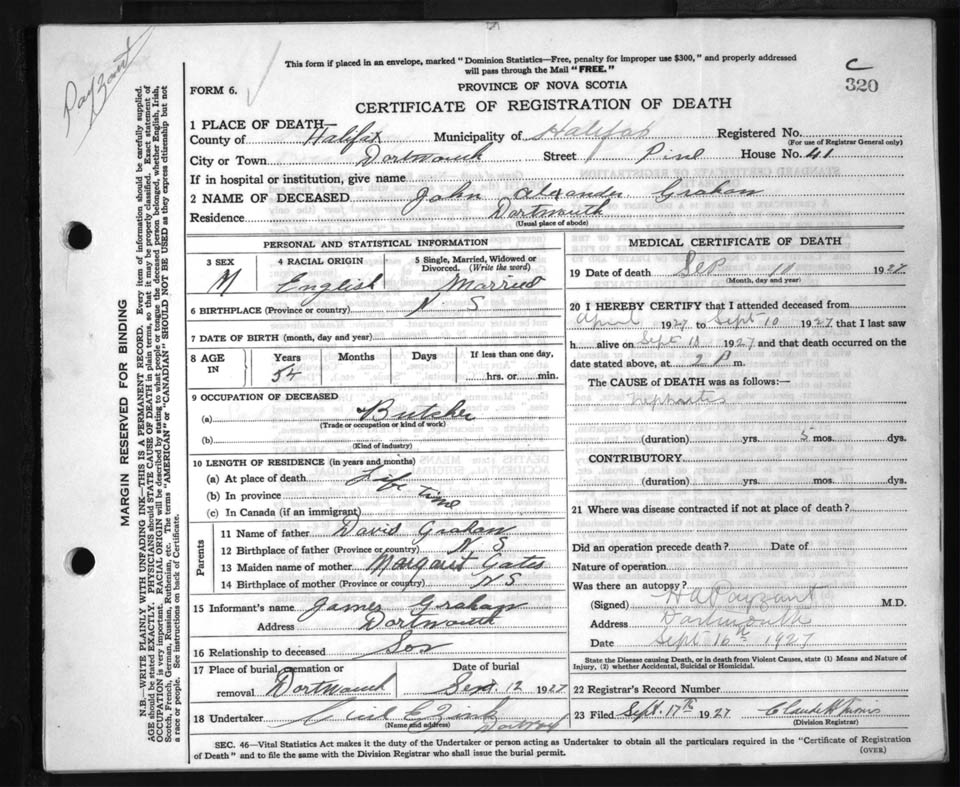 Payzant
This form if placed in an envelope, marked "Dominion Statistics—Free, penalty for improper use $300," and properly addressed
will pass through the Mail "FREE."
C
320
FORM 6.
PROVINCE OF NOVA SCOTIA
CERTIFICATE OF REGISTRATION OF DEATH
MARGIN RESERVED FOR BINDING
N.B.—WRITE PLAINLY WITH UNFADING INK—THIS IS A PERMANENT RECORD. Every item of information should be carefully supplied.
AGE should be stated EXACTLY. PHYSICIANS should STATE CAUSE OF DEATH in plain terms, so that it may be properly classified. Exact statement of
OCCUPATION is very important. RACIAL ORIGIN will be described by stating to what people or tongue the deceased person belonged, whether English, Irish,
Scotch, French, German, Russian, Ruthenian, etc. The terms "AMERICAN" or "CANADIAN" SHOULD NOT BE USED as they express citizenship but not
a race or people. See instructions on back of Certificate.
1 PLACE OF DEATH—
County of Halifax Municipality of Halifax Registered No.
(For use of Registrar General only)
City or Town Dartmouth Street Pine House No. 41
If in hospital or institution, give name
2 NAME OF DECEASED John Alexander Graham
Residence Dartmouth
(Usual place of abode)
PERSONAL AND STATISTICAL INFORMATION
3 SEX M
4 RACIAL ORIGIN English
5 Single, Married, Widowed or
Divorced. (Write the word)
Married
6 BIRTHPLACE (Province or country) N S
7 DATE OF BIRTH (month, day and year)
8 AGE IN Years Months Days If less than one day,
54 hrs. or min.
9 OCCUPATION OF DECEASED
(a) Butcher
(Trade or occupation or kind of work)
(b)
(Kind of industry)
10 LENGTH OF RESIDENCE (in years and months)
(a) At place of death Life time
(b) In province
(c) In Canada (if an immigrant)
Parents
11 Name of father David Graham
12 Birthplace of father (Province or country) N S
13 Maiden name of mother Margaret Yates
14 Birthplace of mother (Province or country) N S
15 Informant's name James Graham
Address Dartmouth
16 Relationship to deceased Son
17 Place of burial, cremation or Date of burial
removal Dartmouth Sept 12 1927
18 Undertaker Zink Dartmouth
(Name and address)
MEDICAL CERTIFICATE OF DEATH
19 Date of death Sep 10 1927
(Month, day and year)
20 I HEREBY CERTIFY that I attended deceased from
April 1927 to Sept 10 1927 that I last saw
h alive on Sept 10 1927 and that death occurred on the
date stated above, at 2 P m.
The CAUSE of DEATH was as follows:—
Nephritis
(duration) yrs. 5 mos. dys.
CONTRIBUTORY
(duration) yrs. mos. dys.
21 Where was disease contracted if not at place of death?
Did an operation precede death? Date of
Nature of operation
Was there an autopsy?
(Signed) H A Payzant M.D.
Address Dartmouth
Date Sept 16th 1927
State the Disease causing Death, or in death from Violent Causes, state (1) Means and Nature of
Injury, (2) whether Accidental, Suicidal or Homicidal.
22 Registrar's Record Number
23 Filed Sept. 17th 1927
(Division Registrar)
SEC. 46—Vital Statistics Act makes it the duty of the Undertaker or person acting as Undertaker to obtain all the particulars required in the "Certificate of Registration
of Death" and to file the same with the Division Registrar who shall issue the burial permit.
(OVER)